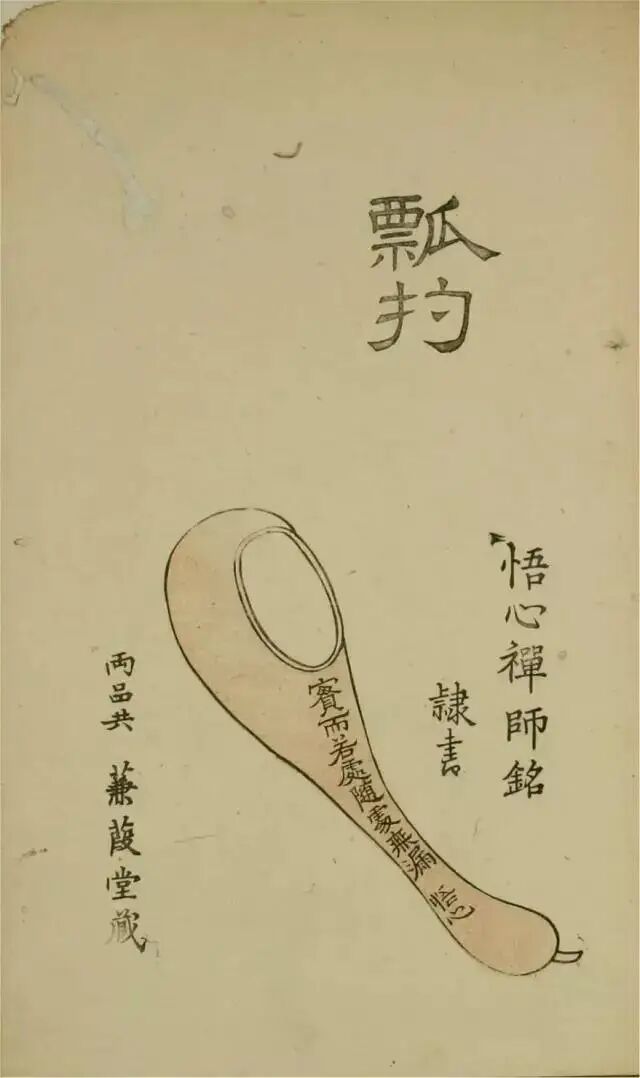 瓢扚
悟心禪師銘
隷書
實而若虛隨處無漏 悟心
両品共 蒹葭堂藏